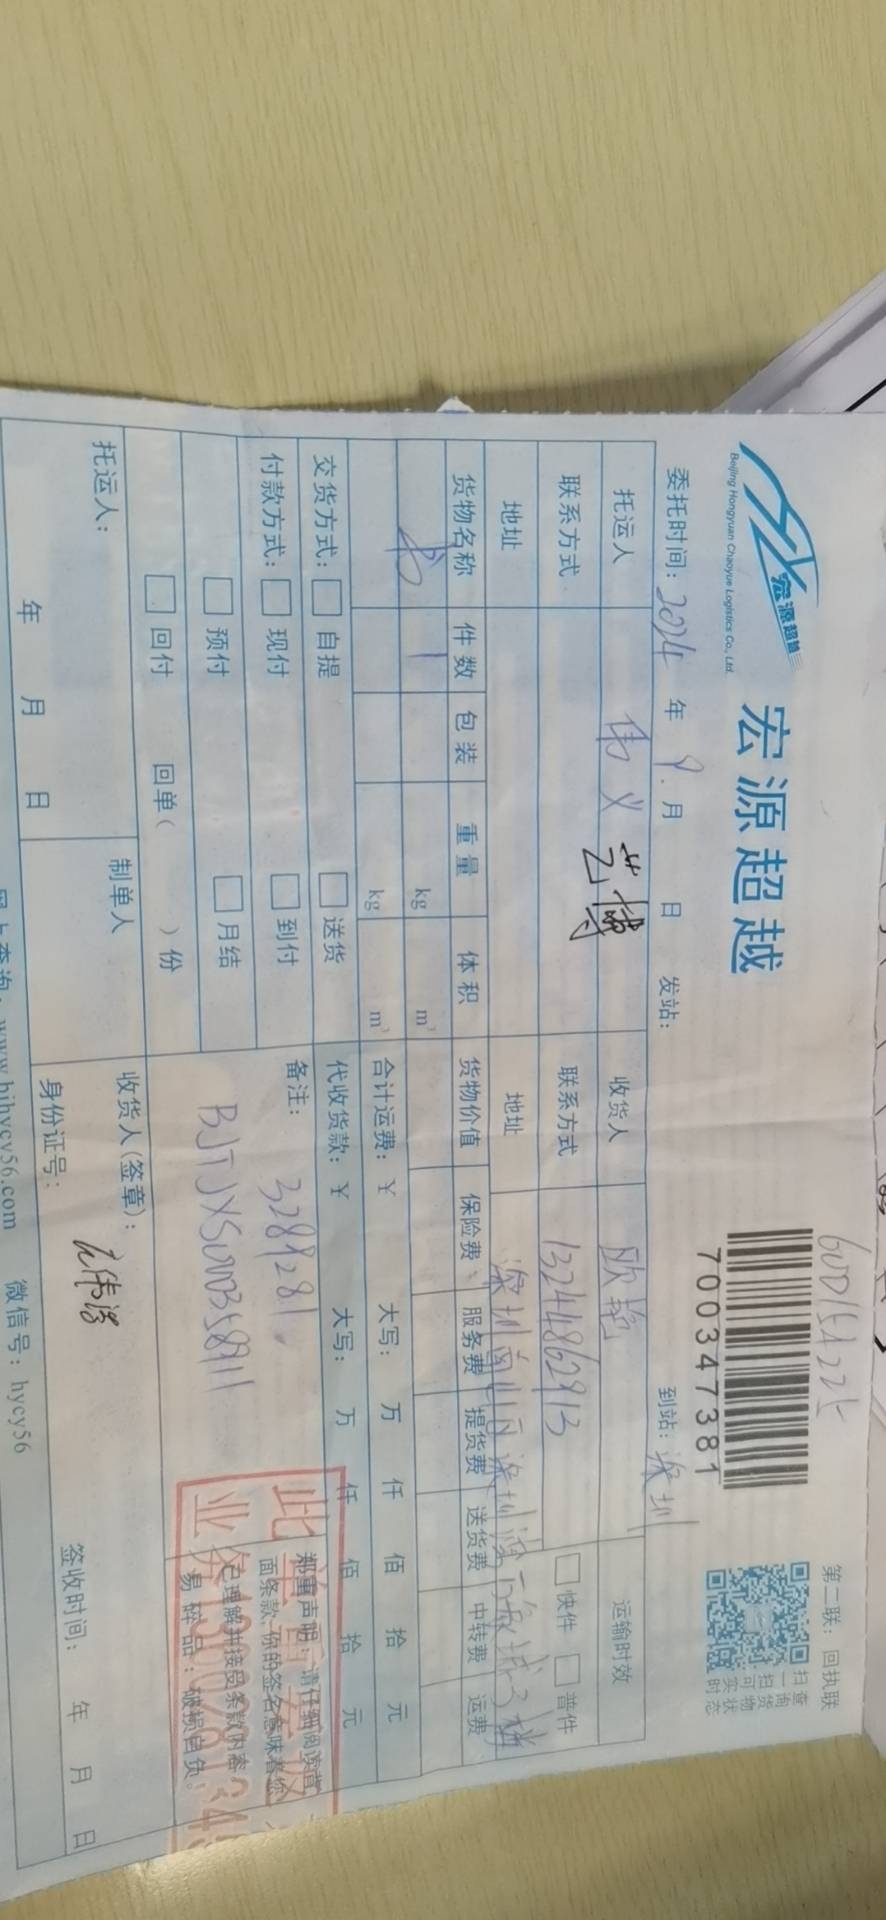 宏源超越
Beijing Hongyuan Chaoyue Logistics Co., Ltd.
宏源超越
700347381
第二联：回执联
扫一扫可实时
查询货物状态
委托时间：2024 年 9 月 日 发站： 到站：深圳
托运人 伟义 艺博 收货人 欧 运输时效
联系方式 联系方式 13244862913 快件 普件
地址 地址 深圳
货物名称 件数 包装 重量 体积 货物价值 保险费 服务费 提货费 送货费 中转费 运费
书 1 kg m³
kg m³ 合计运费：¥ 大写： 万 仟 佰 拾 元
交货方式： 自提 送货 代收货款：¥ 大写： 万 仟 佰 拾 元
付款方式： 现付 到付 备注： 3289281
预付 月结
回付 回单（ ）份
郑重声明：请仔细阅读背
面条款，你的签名意味着您
已理解并接受条款内容
易碎品：破损自负。
托运人： 制单人 收货人(签章)：
身份证号：
年 月 日 签收时间： 年 月 日
网上查询：www.bjhycy56.com 微信号：hycy56